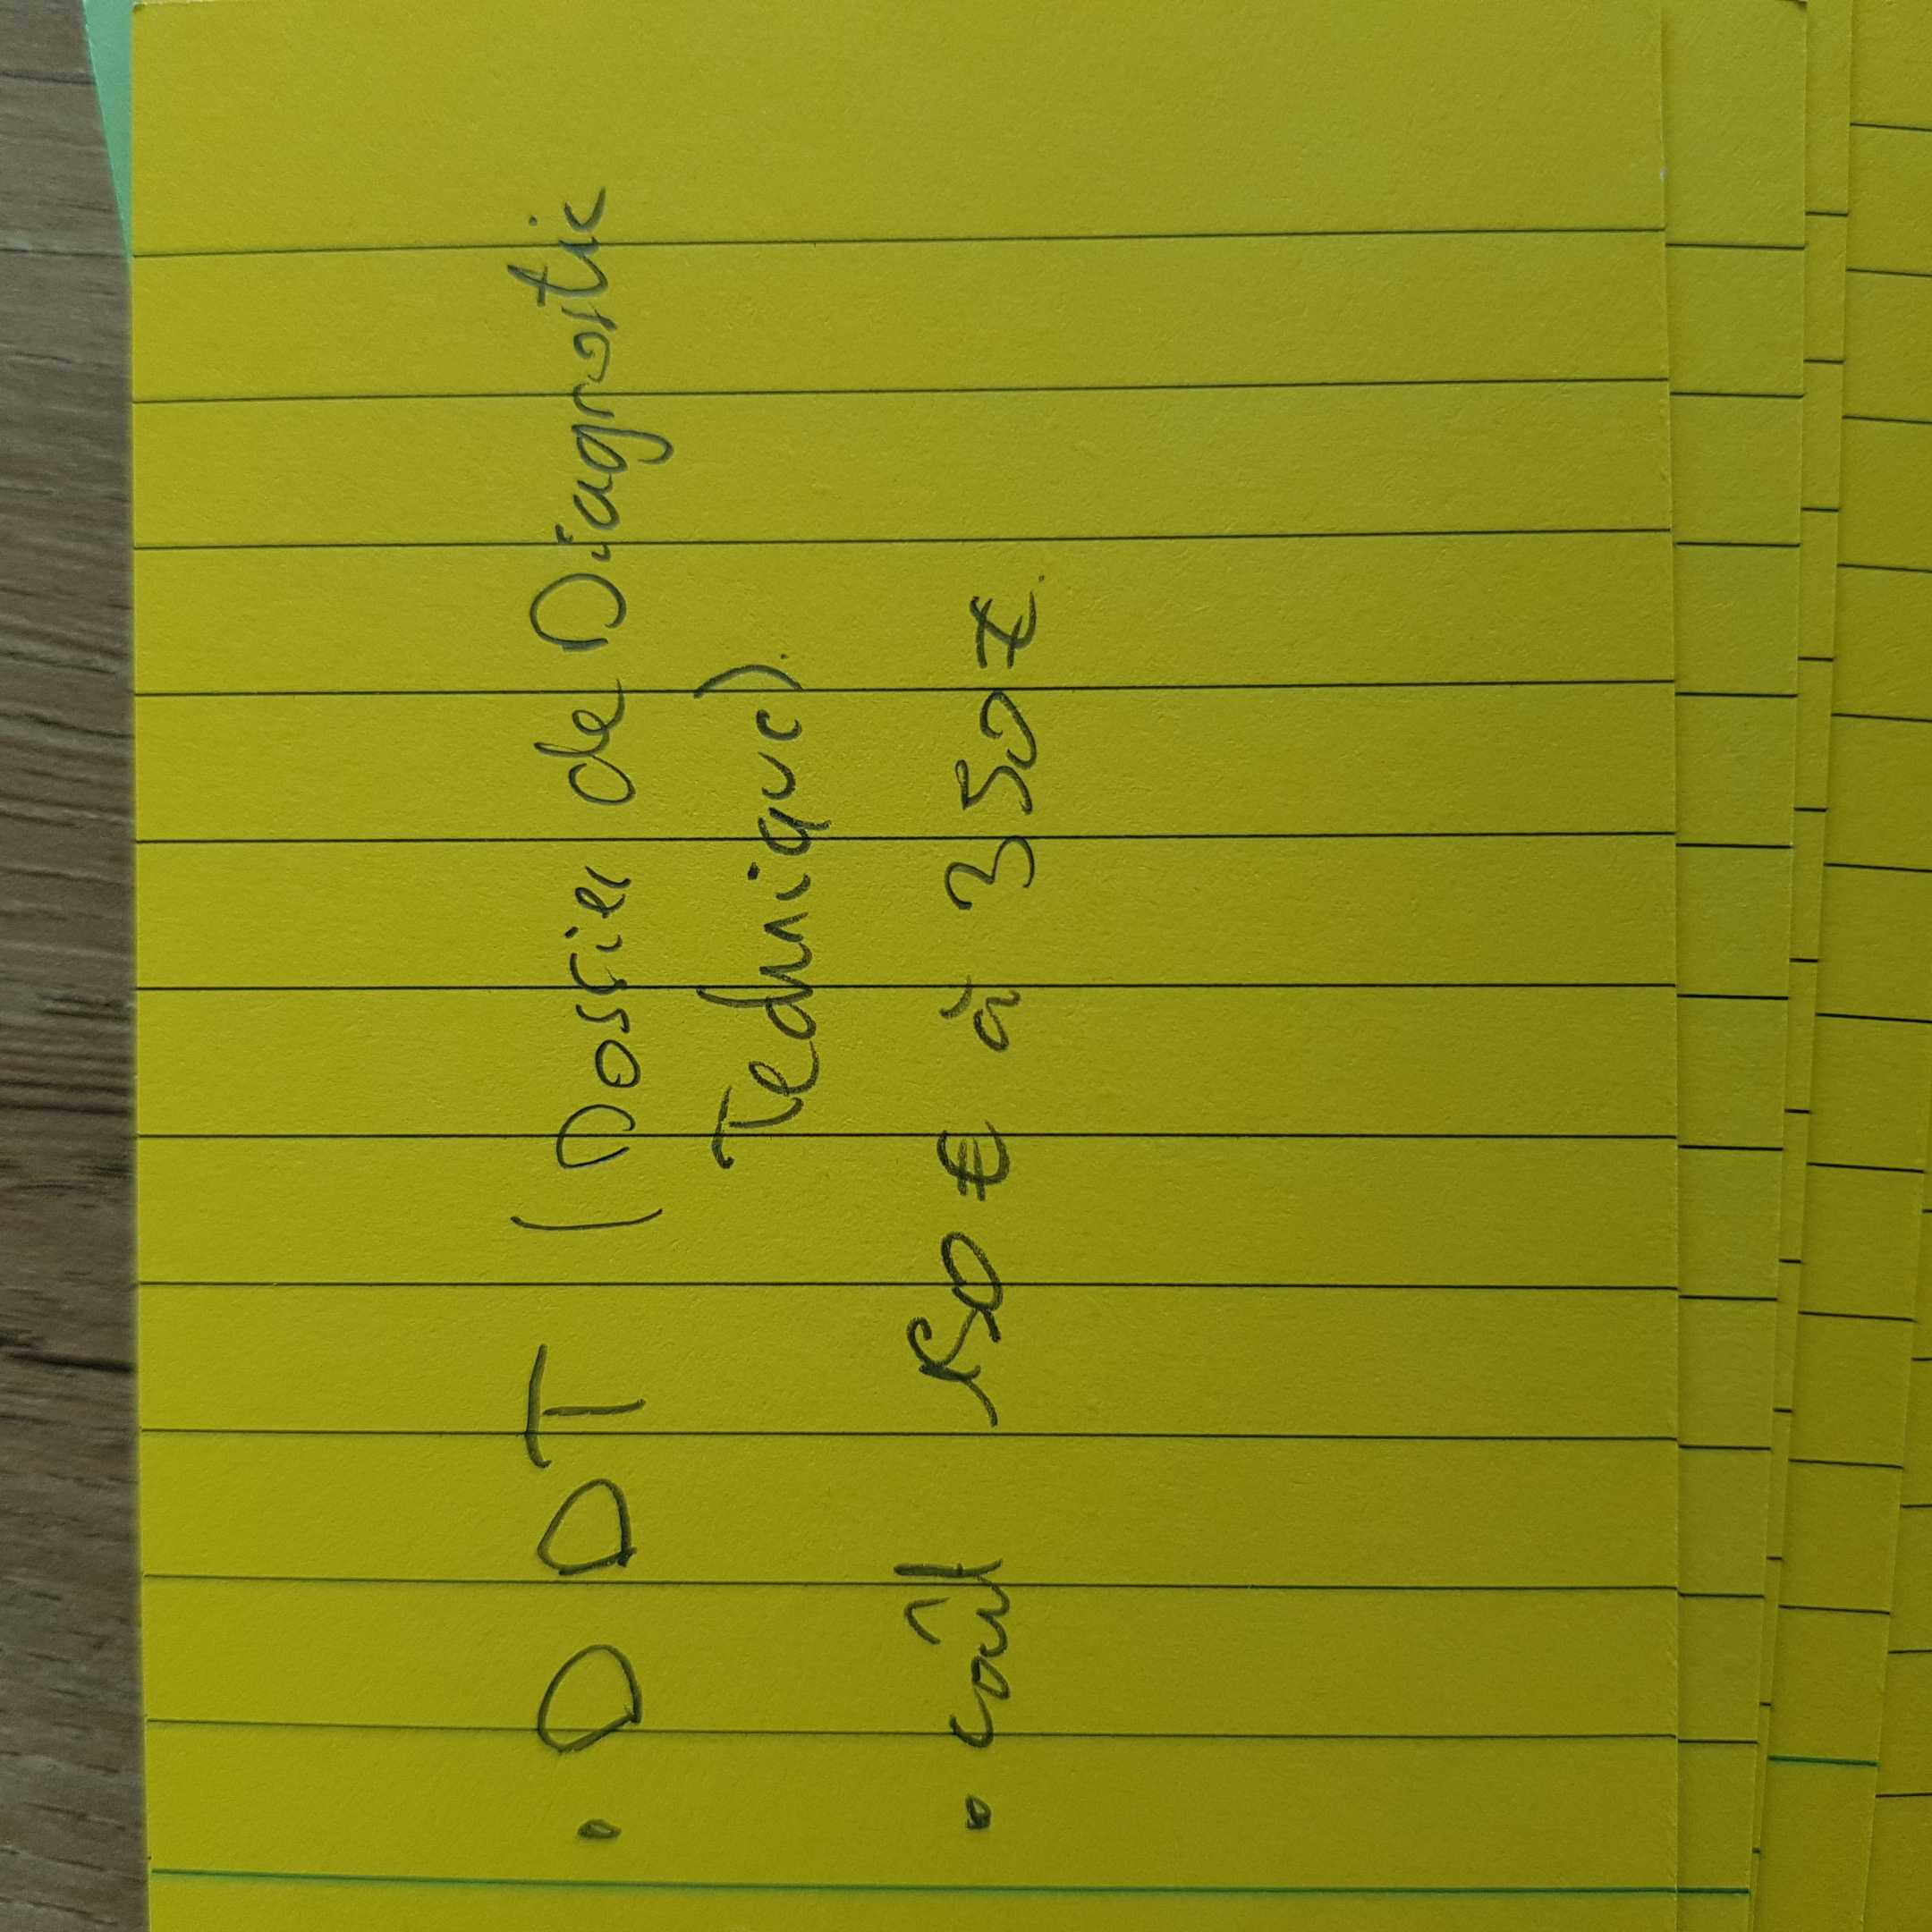 • DDT (Dossier de Diagnostic
Technique).
• coût 150 € à 350 €.